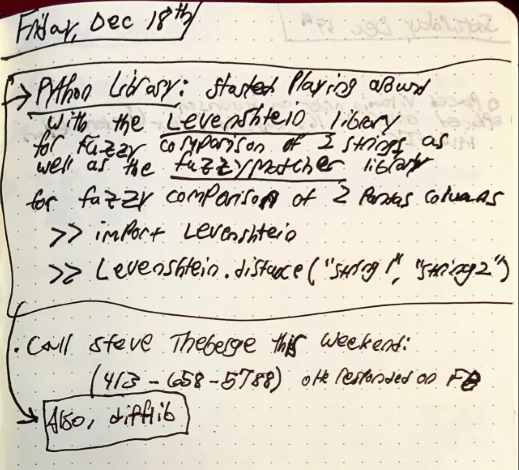 Friday, Dec 18th
→ Python Library: started Playing around
with the Levenshtein library
for fuzzy comparison of 2 strings as
well as the fuzzymatcher library
for fuzzy comparison of 2 Pandas columns
>> import Levenshtein
>> Levenshtein.distance("string1", "string2")
· Call Steve Theberge this weekend:
(413-658-5788) or he responded on FB
Also, difflib